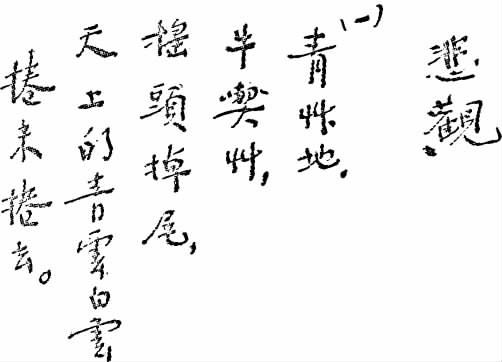 悲觀
(一)
青艸地,
牛喫艸,
搖頭掉尾,
天上的青雲白雲
捲來捲去。